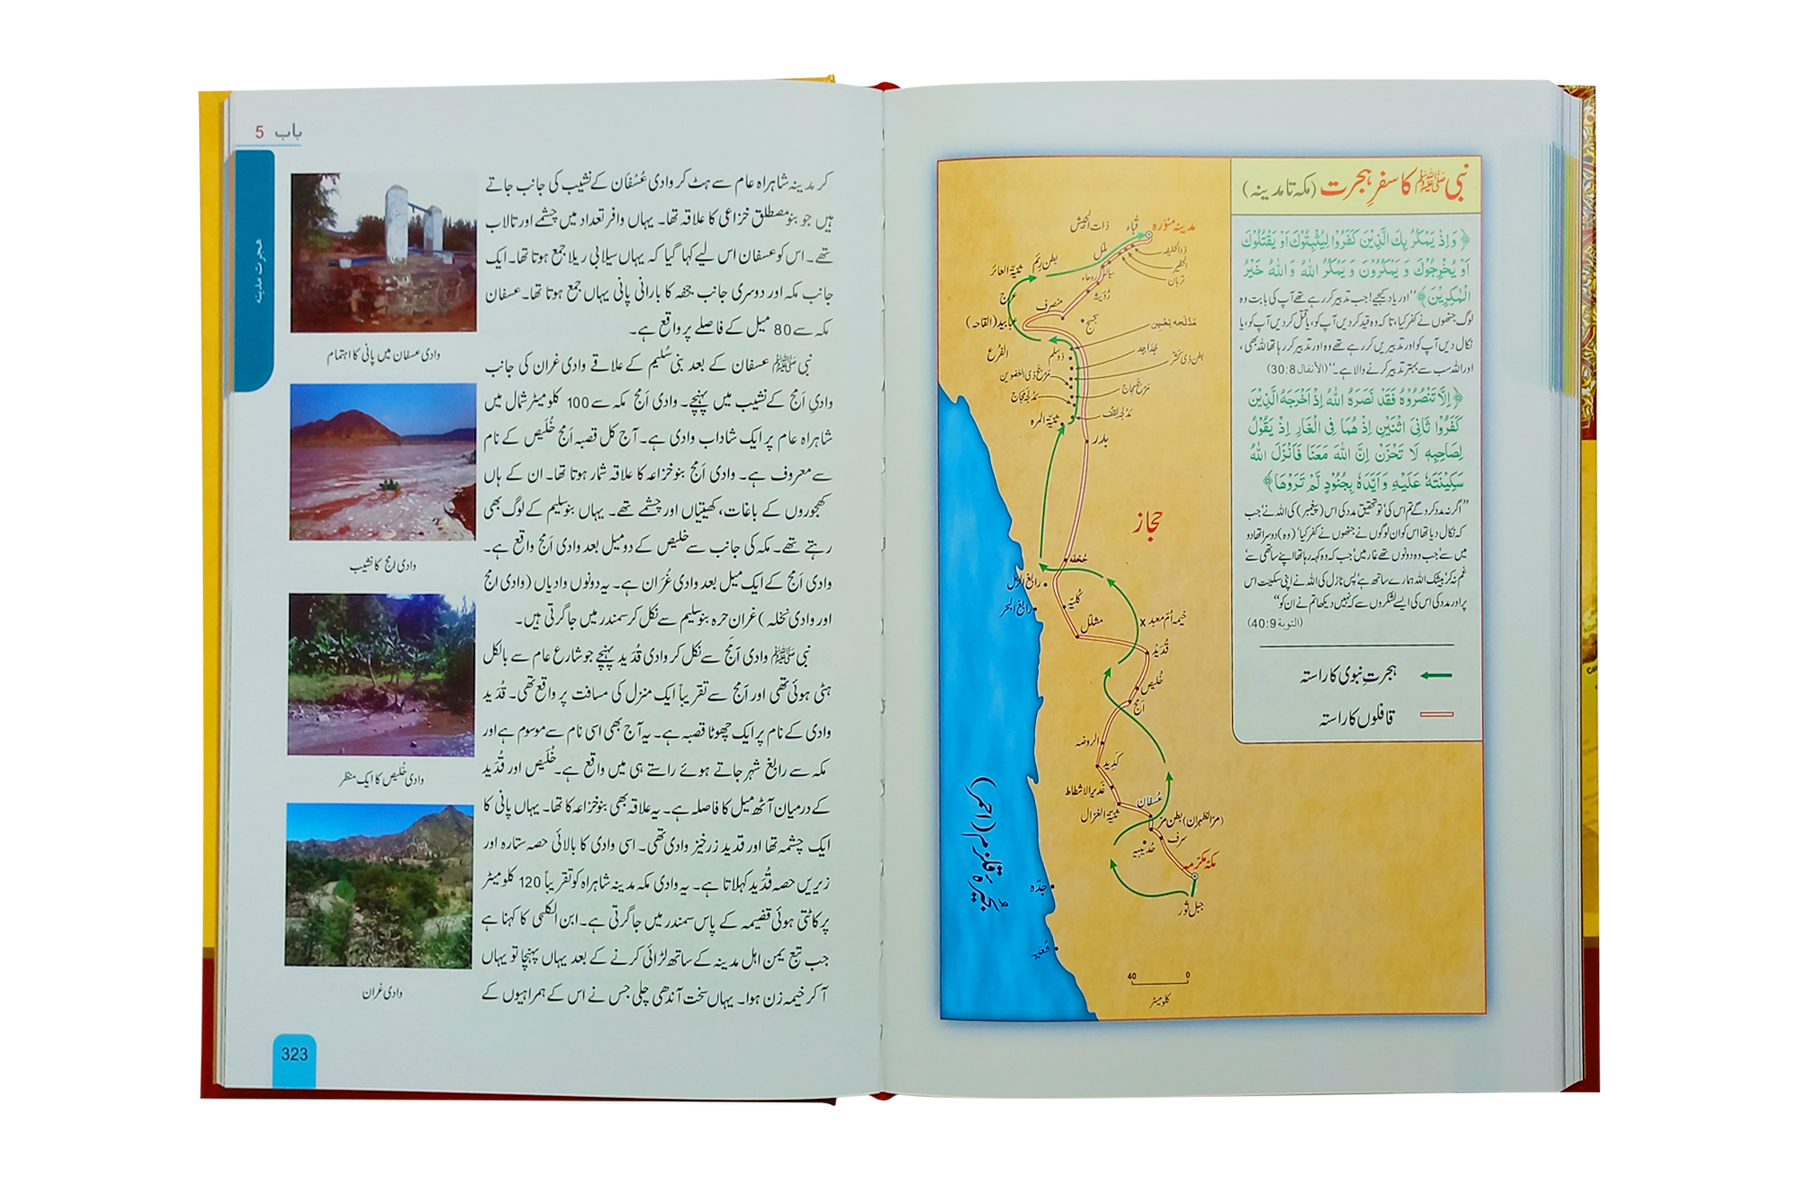 نبی ﷺ کا سفرِ ہجرت (مکہ تا مدینہ)
﴿وَاِذْ يَمْكُرُ بِكَ الَّذِيْنَ كَفَرُوْا لِيُثْبِتُوْكَ اَوْ يَقْتُلُوْكَ
اَوْ يُخْرِجُوْكَ وَ يَمْكُرُوْنَ وَ يَمْكُرُ اللّٰهُ وَ اللّٰهُ خَيْرُ
الْمٰكِرِيْنَ﴾ ’’اور یاد کیجیے! جب تدبیر کر رہے تھے آپ کی بابت وہ
لوگ جنھوں نے کفر کیا، تاکہ وہ قید کر دیں آپ کو، یا قتل کر دیں آپ کو، یا
نکال دیں آپ کو اور تدبیریں کر رہے تھے وہ اور تدبیر کر رہا تھا اللہ بھی،
اور اللہ سب سے بہتر تدبیر کرنے والا ہے۔‘‘ (الأنفال 30:8)
﴿اِلَّا تَنْصُرُوْهُ فَقَدْ نَصَرَهُ اللّٰهُ اِذْ اَخْرَجَهُ الَّذِيْنَ
كَفَرُوْا ثَانِيَ اثْنَيْنِ اِذْ هُمَا فِي الْغَارِ اِذْ يَقُوْلُ
لِصَاحِبِهٖ لَا تَحْزَنْ اِنَّ اللّٰهَ مَعَنَا فَاَنْزَلَ اللّٰهُ
سَكِيْنَتَهٗ عَلَيْهِ وَ اَيَّدَهٗ بِجُنُوْدٍ لَّمْ تَرَوْهَا﴾
’’اگر نہ مدد کرو گے تم اس کی‘ تو تحقیق مدد کی اس (پیغمبر) کی اللہ نے‘ جب
کہ نکال دیا تھا اس کو ان لوگوں نے جنھوں نے کفر کیا‘ (وہ) دوسرا تھا دو
میں سے‘ جب کہ وہ دونوں تھے غار میں‘ جب کہ وہ کہہ رہا تھا اپنے ساتھی سے‘
غم نہ کر‘ بیشک اللہ ہمارے ساتھ ہے‘ پس نازل کی اللہ نے اپنی سکینت اس
پر اور مدد کی اس کی ایسے لشکروں سے کہ نہیں دیکھا تم نے ان کو‘‘
(التوبة 40:9)
ہجرتِ نبوی کا راستہ
قافلوں کا راستہ
مدینہ منورہ
قُباء
ذات الجیش
ذوالحلیفہ
ملل
تربان
بطن رِئم
ثنیۃ العائر
رُوَیثہ
عرج
منصرف
عبابید (القاحہ)
مَدْلَجہ تِعْہِن
الفُرع
ذوسلم
بطن ذی کشر
مَرْجَح ذی العضوین
مَرْجَح مجاج
مَدْلَجہ مجاج
مَدْلَجہ لقف
ثنیّۃ المرہ
بدر
حجاز
جُحفہ
رابغ البحر
کُلیّہ
خیمہ اُمّ معبد x
مشلّل
قُدَید
خُلیص
اَمج
الروضہ
کدید
غدیر الاشطاط
عُسفان
ثنیّۃ الغزال
(مرّ الظہران) بطن مرّ
سرف
حدیبیہ
مکہ مکرمہ
جبل ثور
جدّہ
بُحیرۂ قلزم (احمر)
40 0
کلومیٹر
باب 5
ہجرت مدینہ
کر مدینہ شاہراہ عام سے ہٹ کر وادی عُسْفان کے نشیب کی جانب جاتے
ہیں جو بنو مصطلق خزاعی کا علاقہ تھا۔ یہاں وافر تعداد میں چشمے اور تالاب
تھے۔ اس کو عسفان اس لیے کہا گیا کہ یہاں سیلابی ریلا جمع ہوتا تھا۔ ایک
جانب مکہ اور دوسری جانب جحفہ کا بارانی پانی یہاں جمع ہوتا تھا۔ عسفان
مکہ سے 80 میل کے فاصلے پر واقع ہے۔
نبی ﷺ عسفان کے بعد بنی سُلیم کے علاقے وادی غران کی جانب
وادیِ اَمج کے نشیب میں پہنچے۔ وادی اَمج مکہ سے 100 کلومیٹر شمال میں
شاہراہ عام پر ایک شاداب وادی ہے۔ آج کل قصبہ اَمج خُلَیص کے نام
سے معروف ہے۔ وادی اَمج بنو خزاعہ کا علاقہ شمار ہوتا تھا۔ ان کے ہاں
کھجوروں کے باغات، کھیتیاں اور چشمے تھے۔ یہاں بنو سلیم کے لوگ بھی
رہتے تھے۔ مکہ کی جانب سے خلیص کے دو میل بعد وادی اَمج واقع ہے۔
وادی اَمج کے ایک میل بعد وادی غُرَان ہے۔ یہ دونوں وادیاں (وادی امج
اور وادی نخلہ) غران حرہ بنو سلیم سے نکل کر سمندر میں جا گرتی ہیں۔
نبی ﷺ وادی اَمج سے نکل کر وادی قُدَید پہنچے جو شارع عام سے بالکل
ہٹی ہوئی تھی اور اَمج سے تقریباً ایک منزل کی مسافت پر واقع تھی۔ قُدَید
وادی کے نام پر ایک چھوٹا قصبہ ہے۔ یہ آج بھی اسی نام سے موسوم ہے اور
مکہ سے رابغ شہر جاتے ہوئے راستے ہی میں واقع ہے۔ خُلَیص اور قُدَید
کے درمیان آٹھ میل کا فاصلہ ہے۔ یہ علاقہ بھی بنو خزاعہ کا تھا۔ یہاں پانی کا
ایک چشمہ تھا اور قدید زرخیز وادی تھی۔ اسی وادی کا بالائی حصہ ستارہ اور
زیریں حصہ قُدَید کہلاتا ہے۔ یہ وادی مکہ مدینہ شاہراہ کو تقریباً 120 کلومیٹر
پر کاٹتی ہوئی قضیمہ کے پاس سمندر میں جا گرتی ہے۔ ابن الکلبی کا کہنا ہے
جب تبع یمن اہل مدینہ کے ساتھ لڑائی کرنے کے بعد یہاں پہنچا تو یہاں
آ کر خیمہ زن ہوا۔ یہاں سخت آندھی چلی جس نے اس کے ہمراہیوں کے
وادی عسفان میں پانی کا اہتمام
وادی امج کا نشیب
وادی خُلیص کا ایک منظر
وادی غران
323